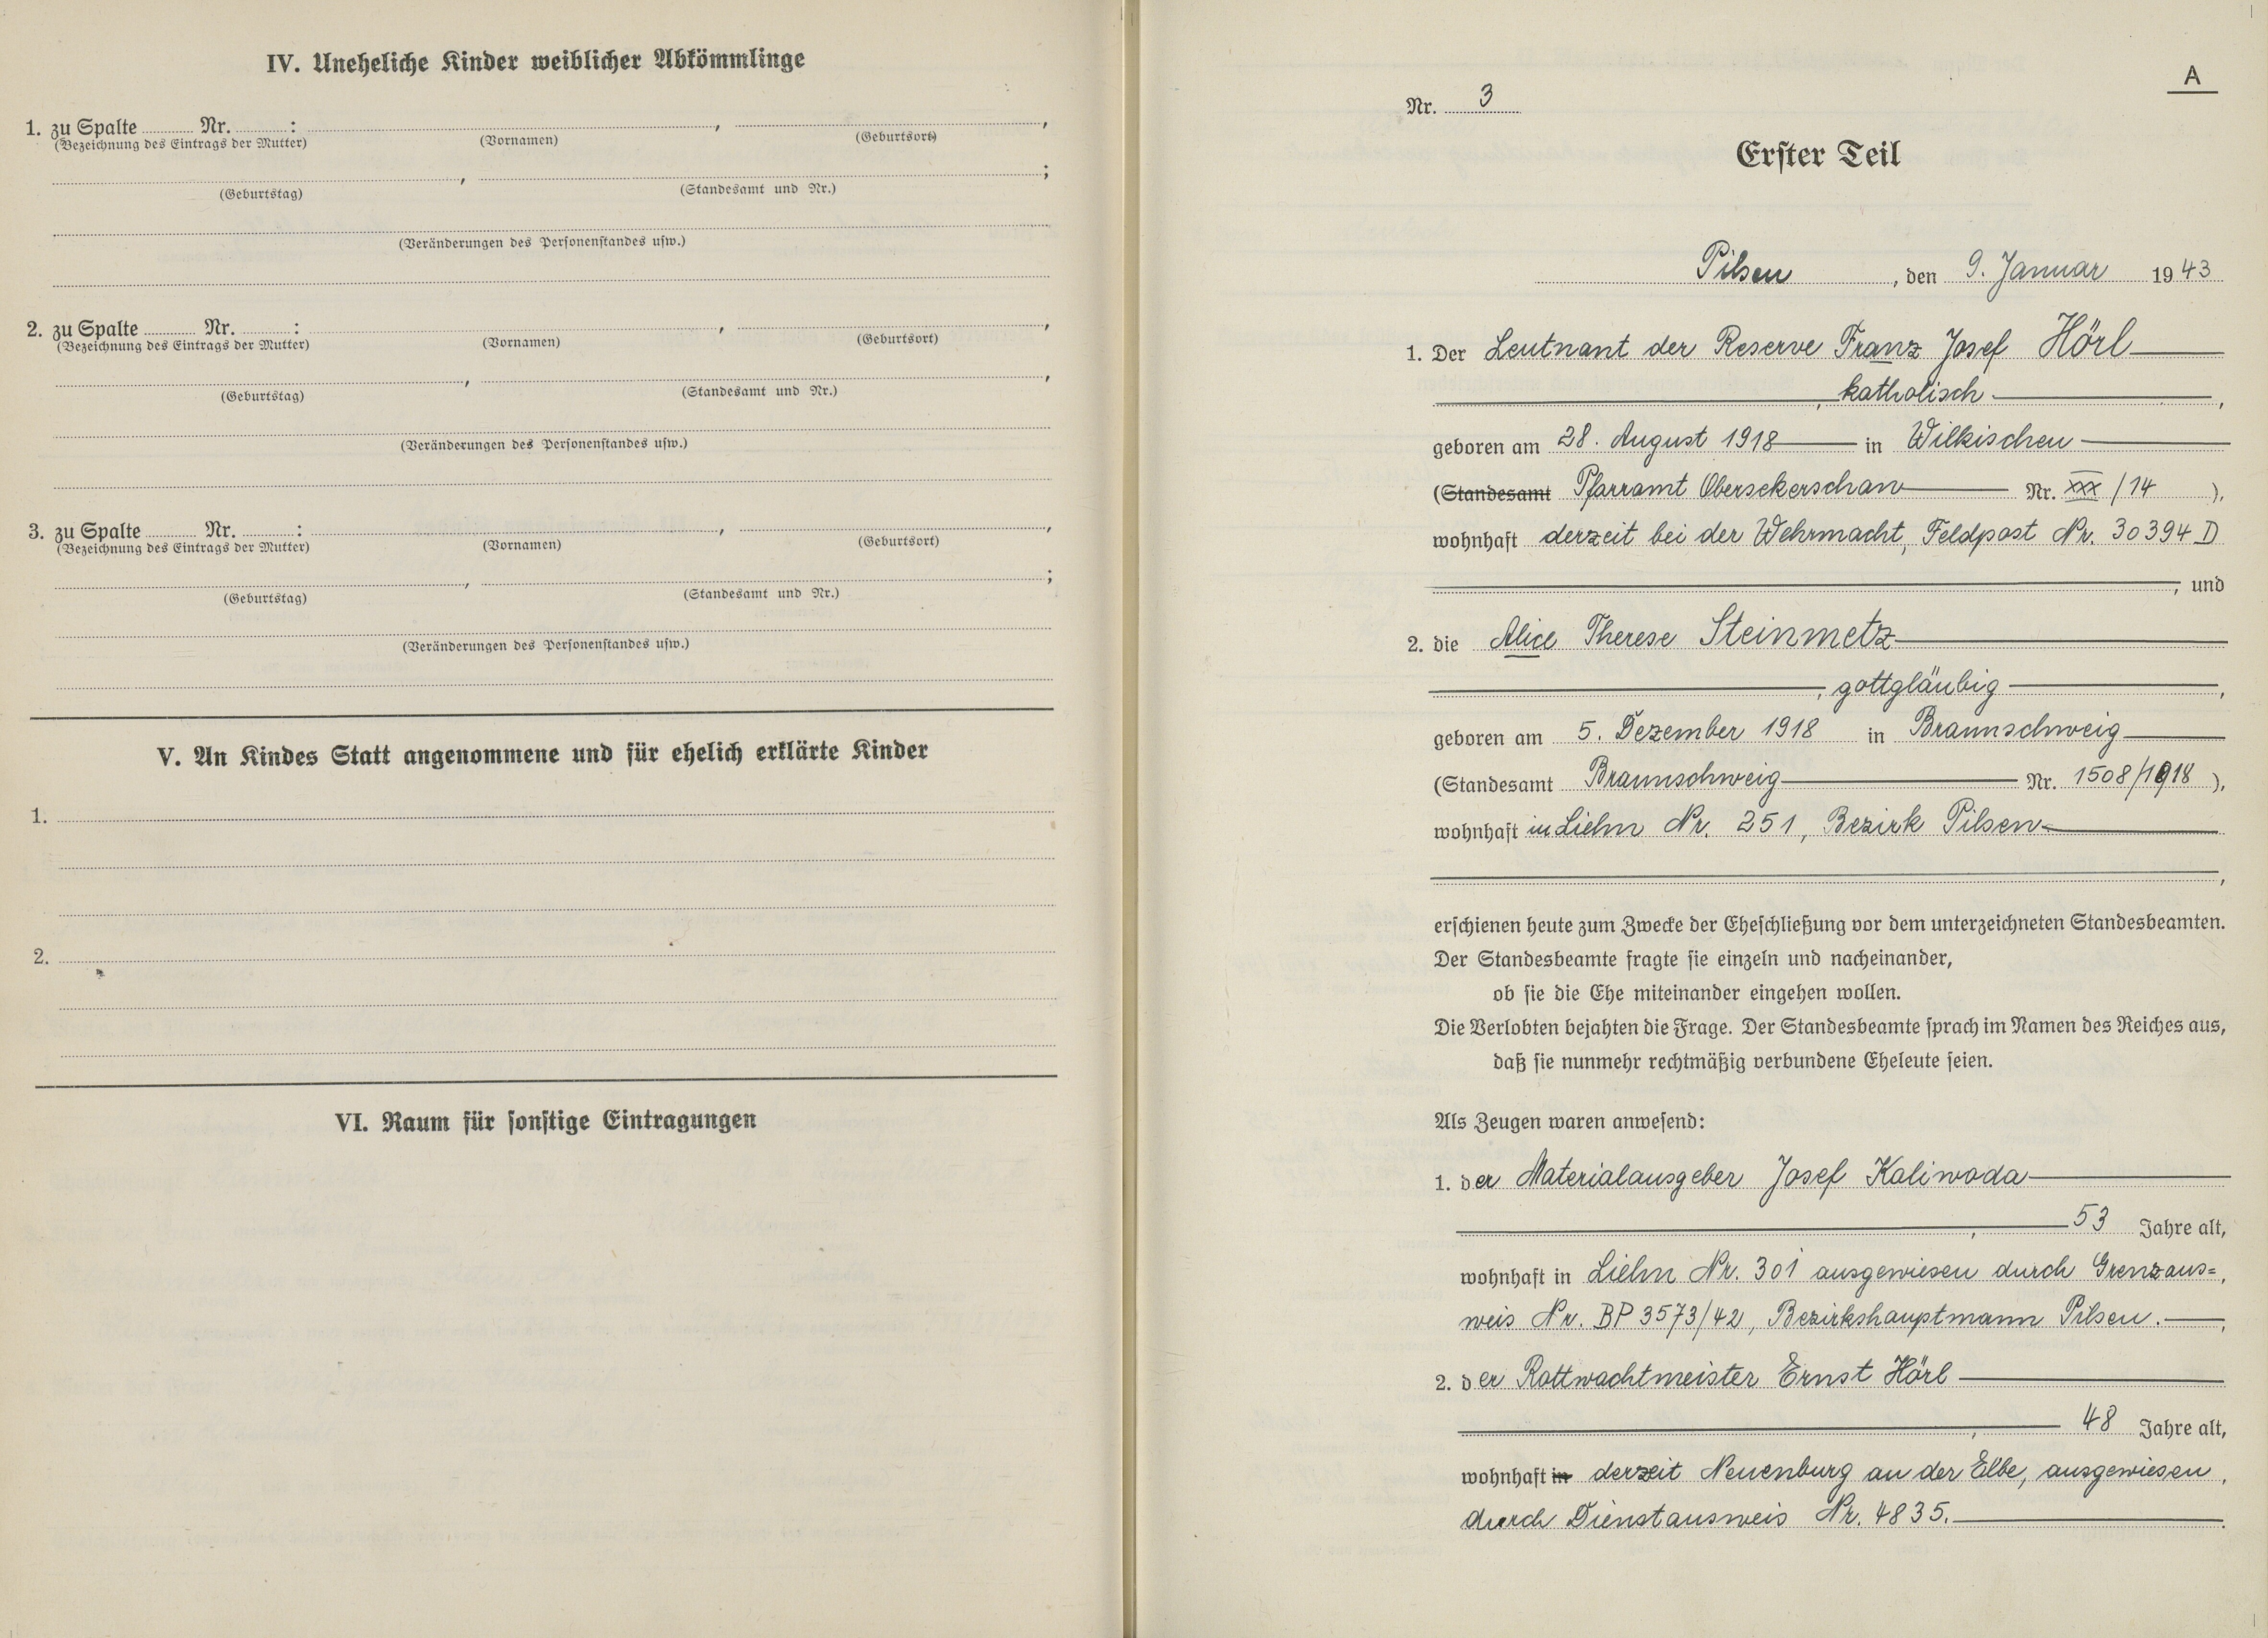 IV. Uneheliche Kinder weiblicher Abkömmlinge
1. zu Spalte Nr. : , ,
(Bezeichnung des Eintrags der Mutter) (Vornamen) (Geburtsort)
, ;
(Geburtstag) (Standesamt und Nr.)
(Veränderungen des Personenstandes usw.)
2. zu Spalte Nr. : , ,
(Bezeichnung des Eintrags der Mutter) (Vornamen) (Geburtsort)
, ,
(Geburtstag) (Standesamt und Nr.)
(Veränderungen des Personenstandes usw.)
3. zu Spalte Nr. : , ,
(Bezeichnung des Eintrags der Mutter) (Vornamen) (Geburtsort)
, ;
(Geburtstag) (Standesamt und Nr.)
(Veränderungen des Personenstandes usw.)
V. An Kindes Statt angenommene und für ehelich erklärte Kinder
1.
2.
VI. Raum für sonstige Eintragungen
A
Nr. 3
Erster Teil
Pilsen, den 9. Januar 1943
1. Der Leutnant der Reserve Franz Josef Hörl
, katholisch ,
geboren am 28. August 1918 in Wilkischen
(Standesamt Pfarramt Obersekerschan Nr. XXX /14 ),
wohnhaft derzeit bei der Wehrmacht, Feldpost Nr. 30394 D
, und
2. die Alice Therese Steinmetz
, gottgläubig ,
geboren am 5. Dezember 1918 in Braunschweig
(Standesamt Braunschweig Nr. 1508/1918 ),
wohnhaft in Liehn Nr. 251, Bezirk Pilsen
,
erschienen heute zum Zwecke der Eheschließung vor dem unterzeichneten Standesbeamten.
Der Standesbeamte fragte sie einzeln und nacheinander,
ob sie die Ehe miteinander eingehen wollen.
Die Verlobten bejahten die Frage. Der Standesbeamte sprach im Namen des Reiches aus,
daß sie nunmehr rechtmäßig verbundene Eheleute seien.
Als Zeugen waren anwesend:
1. der Materialausgeber Josef Kaliwoda
, 53 Jahre alt,
wohnhaft in Liehn Nr. 301 ausgewiesen durch Grenzaus=,
weis Nr. BP 3573/42, Bezirkshauptmann Pilsen. ,
2. der Rottwachtmeister Ernst Hörl
, 48 Jahre alt,
wohnhaft in derzeit Neuenburg an der Elbe, ausgewiesen ,
durch Dienstausweis Nr. 4835. .